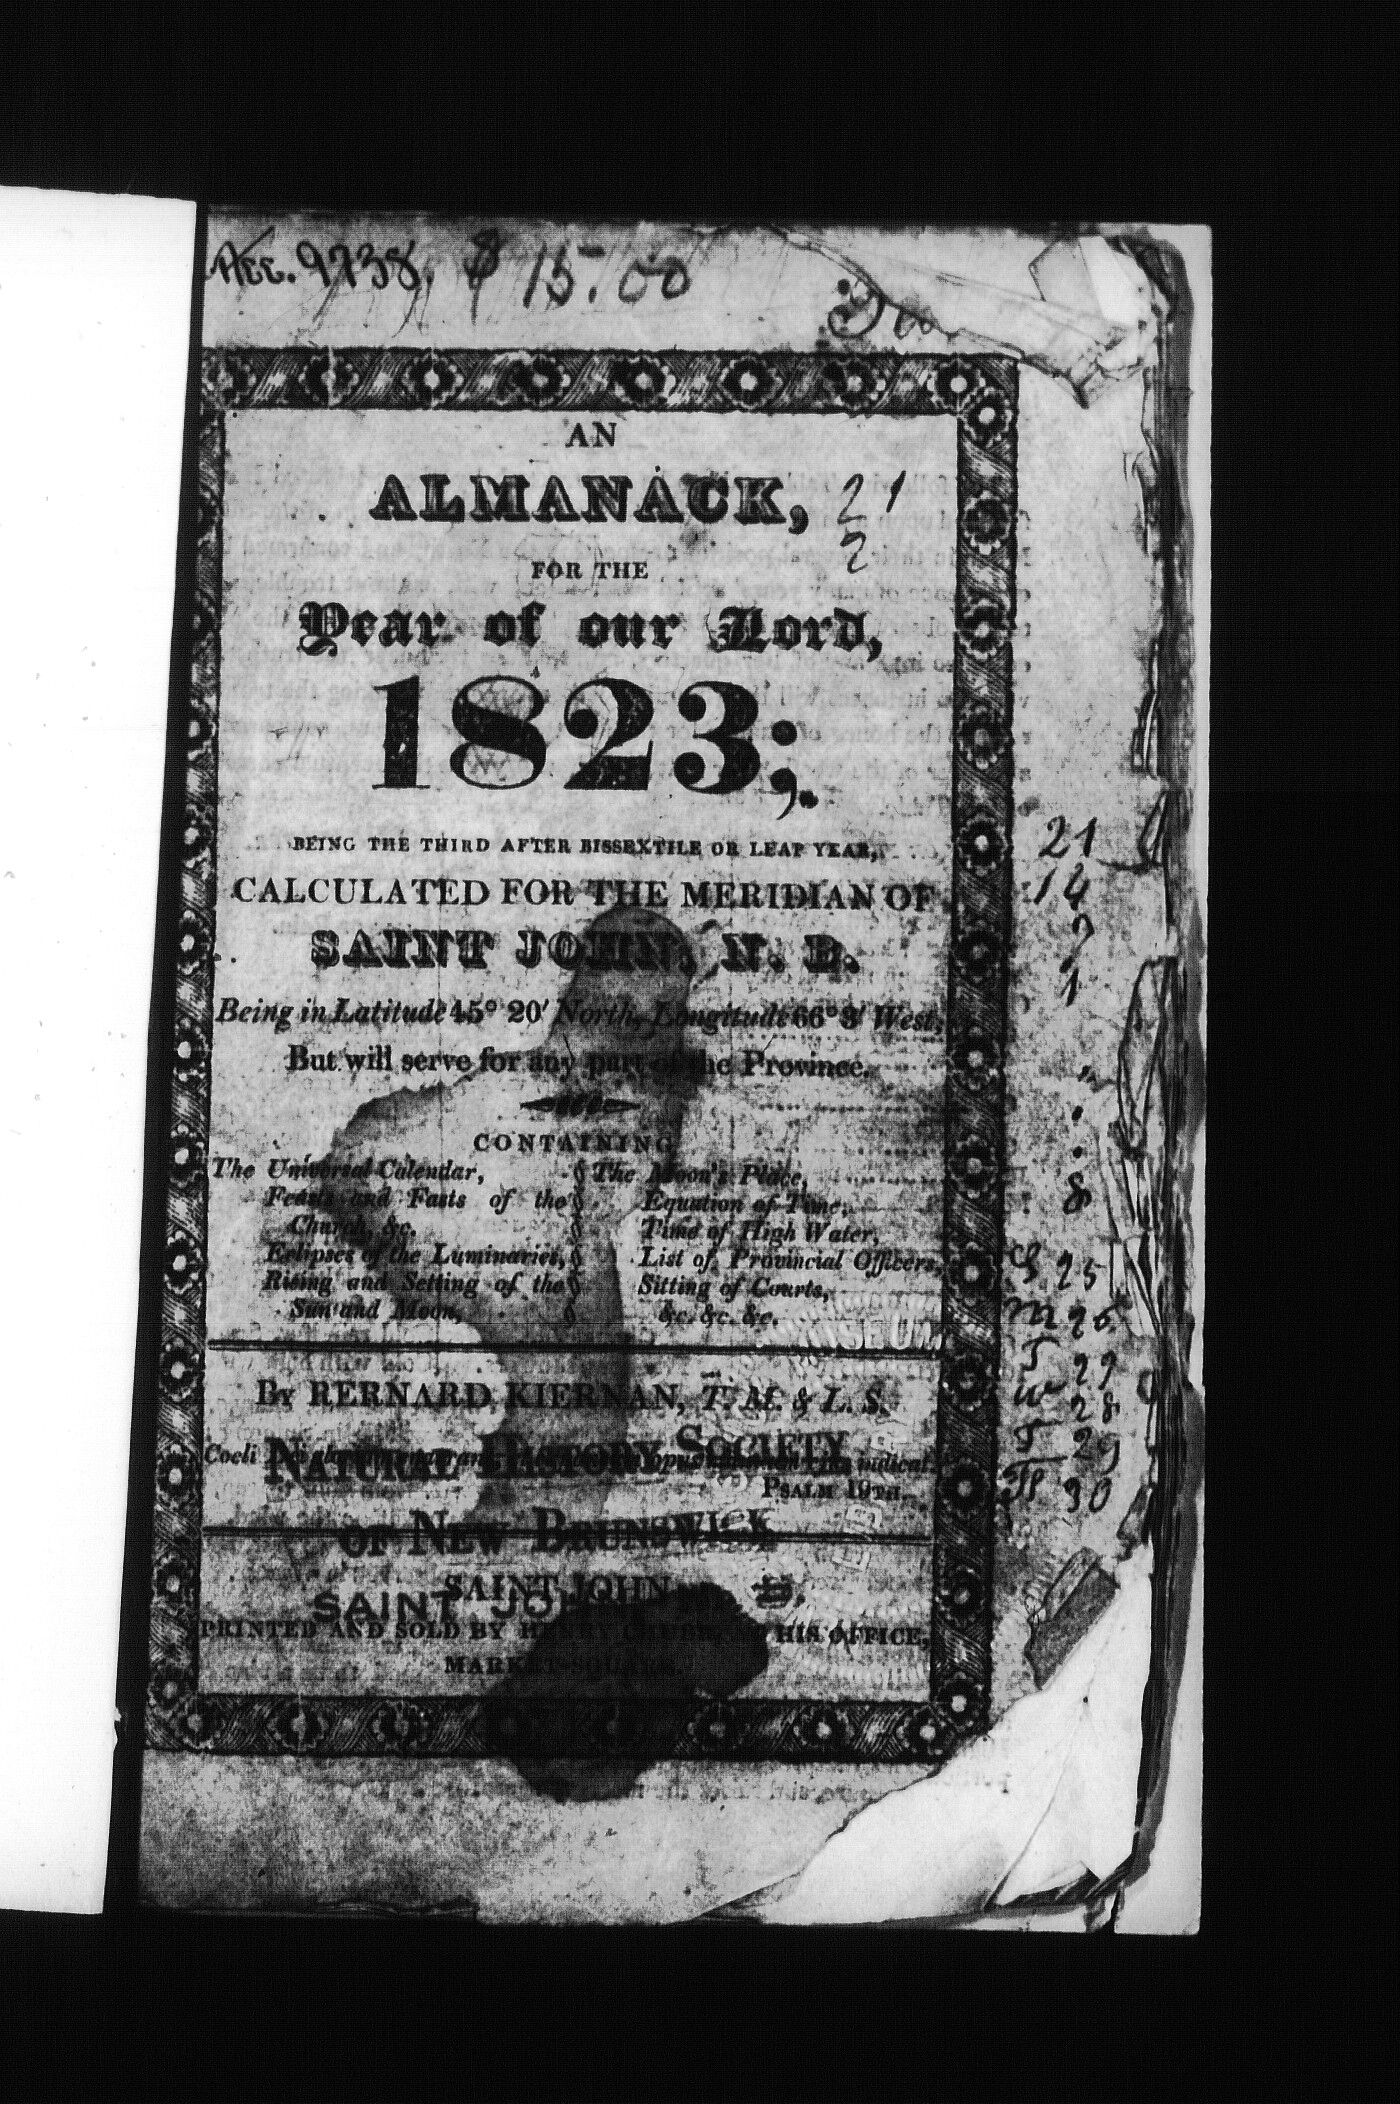 Acc. 9738. $15.00
AN
ALMANACK,
21
2
FOR THE
Year of our Lord,
1823;
BEING THE THIRD AFTER BISSEXTILE OR LEAP YEAR,
CALCULATED FOR THE MERIDIAN OF
SAINT JOHN, N. B.
Being in Latitude 45° 20' North, Longitude 66° 3' West,
But will serve for any part of the Province.
CONTAINING
The Universal Calendar,
Feasts and Fasts of the
Church, &c.
Eclipses of the Luminaries,
Rising and Setting of the
Sun and Moon,
The Moon's Place,
Equation of Time,
Time of High Water,
List of Provincial Officers,
Sitting of Courts,
&c. &c. &c.
BY BERNARD KIERNAN, T. M. & L. S.
Coeli indicat
PSALM 19TH.
NATURAL HISTORY SOCIETY
OF NEW BRUNSWICK
SAINT JOHN, N. B.
SAINT JOHN
PRINTED AND SOLD BY HENRY CHUBB, AT HIS OFFICE,
MARKET-SQUARE.
MUSEUM
21
14
7
1
8
S 25
M 26
T 27
W 28
T 29
30